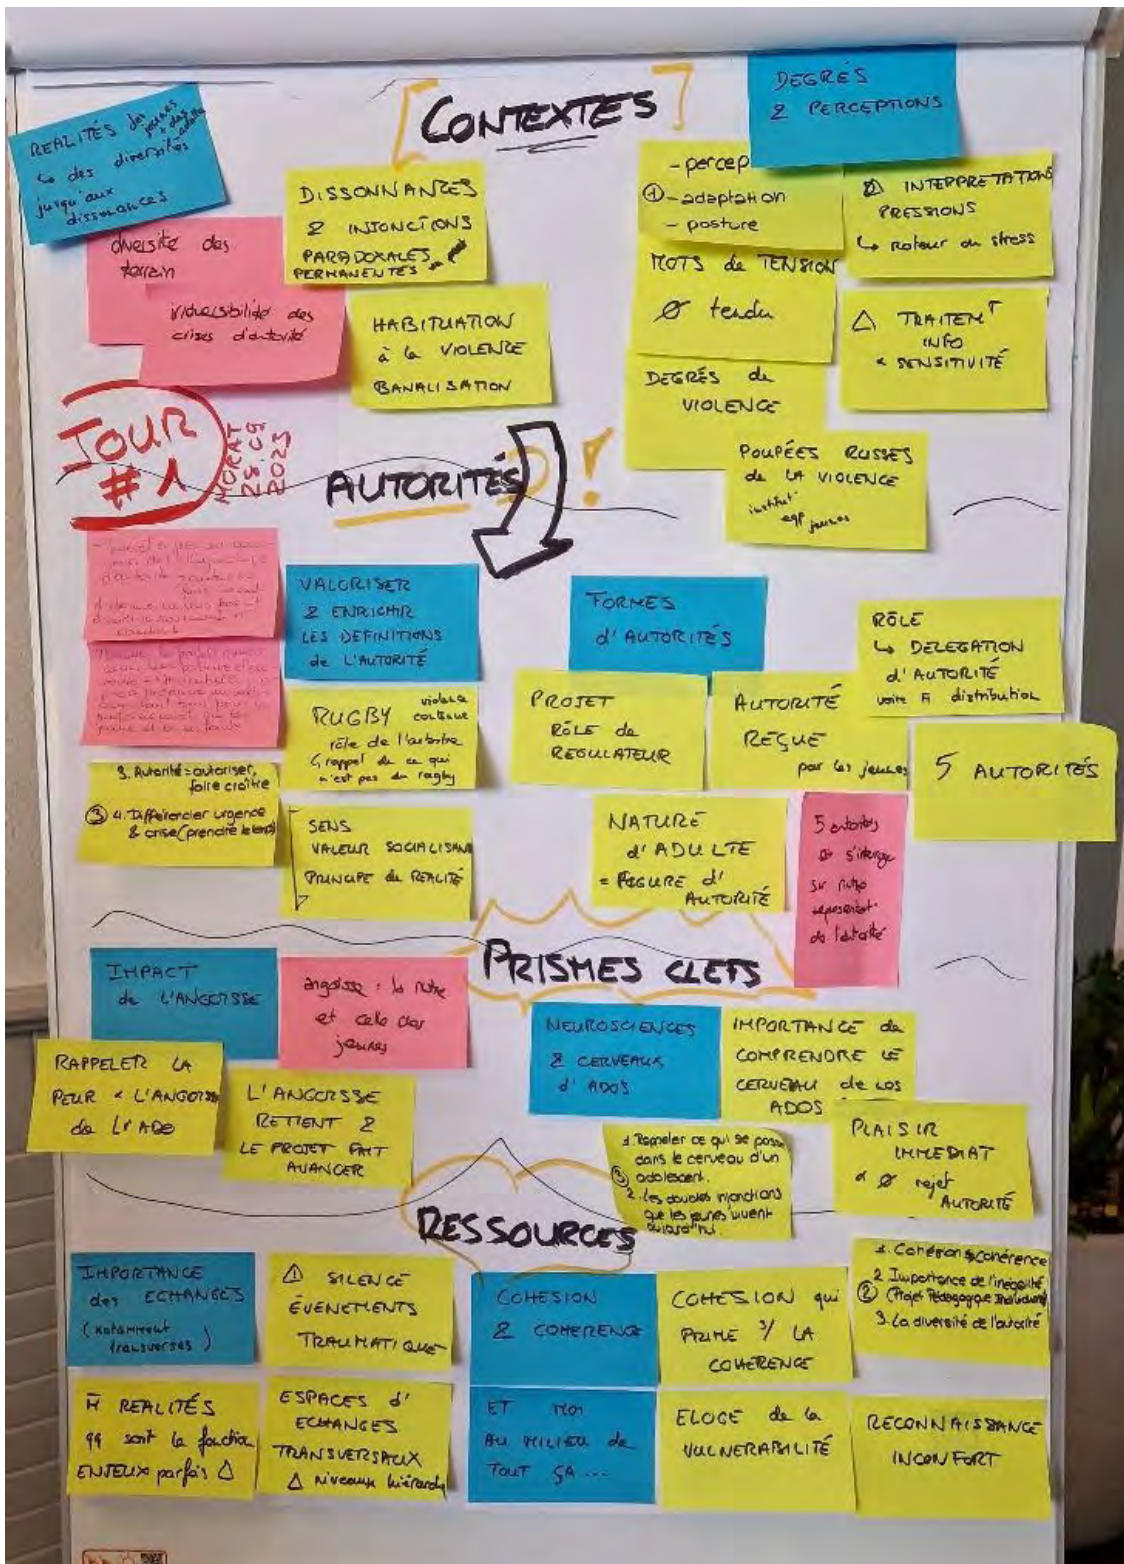 CONTEXTES
DEGRÉS
& PERCEPTIONS
REALITÉS des jeunes
+ des adultes
↳ des diversités
jusqu'aux
dissonances
DISSONNANCES
& INJONCTIONS
PARADOXALES
PERMANENTES
- percep
① - adaptation
- posture
INTERPRETATIONS
PRESSIONS
↳ retour du stress
diversité des
terrain
irréversibilité des
crises d'autorité
HABITUATION
à la VIOLENCE
BANALISATION
MOTS de TENSION
Ø tendu
△ TRAITEMT
INFO
SENSITIVITÉ
DEGRÉS de
VIOLENCE
POUPÉES RUSSES
de LA VIOLENCE
institut°
eqp
jeunes
JOUR
#1
MORAT
2023
AUTORITÉS ?!
VALORISER
& ENRICHIR
LES DEFINITIONS
de L'AUTORITÉ
FORMES
d'AUTORITÉS
RÔLE
↳ DELEGATION
d'AUTORITÉ
voire distribution
RUGBY violence
contenue
rôle de l'arbitre
↳ rappel de ce qui
n'est pas du rugby
PROJET
RÔLE de
REGULATEUR
AUTORITÉ
REÇUE
par les jeunes
5 AUTORITÉS
3. Autorité = autoriser,
faire croître
③ 4. Différencier urgence
& crise (prendre le temps)
SENS
VALEUR SOCIALISANT
PRINCIPE de REALITÉ
NATURE
d'ADULTE
= FIGURE d'
AUTORITÉ
5 autorités
et s'interroge
sur notre
représentat°
de l'autorité
PRISMES CLEFS
IMPACT
de L'ANGOISSE
angoisse : la notre
et celle des
jeunes
NEUROSCIENCES
& CERVEAUX
d'ADOS
IMPORTANCE de
COMPRENDRE LE
CERVEAU de nos
ADOS
RAPPELER LA
PEUR L'ANGOISSE
de L'ADO
L'ANGOISSE
RETIENT &
LE PROJET FAIT
AVANCER
1. Rappeler ce qui se passe
dans le cerveau d'un
③ adolescent.
2. Les doubles injonctions
que les jeunes vivent
aujourd'hui.
PLAISIR
IMMEDIAT
Ø rejet
AUTORITÉ
RESSOURCES
IMPORTANCE
des ECHANGES
(notamment
transverses)
⚠ SILENCE
ÉVENEMENTS
TRAUMATIQUE
COHESION
& COHERENCE
COHESION qui
PRIME s/ LA
COHERENCE
1. Cohésion & cohérence
2 Importance de l'inégalité
② (Projet Pédagogique Individuel)
3. La diversité de l'autorité
M̄ REALITÉS
qq soit la fonction
ENJEUX parfois △
ESPACES d'
ECHANGES
TRANSVERSAUX
△ niveaux hiérarchq
ET MOI
AU MILIEU de
TOUT ÇA ...
ELOGE de la
VULNERABILITÉ
RECONNAISSANCE
INCONFORT